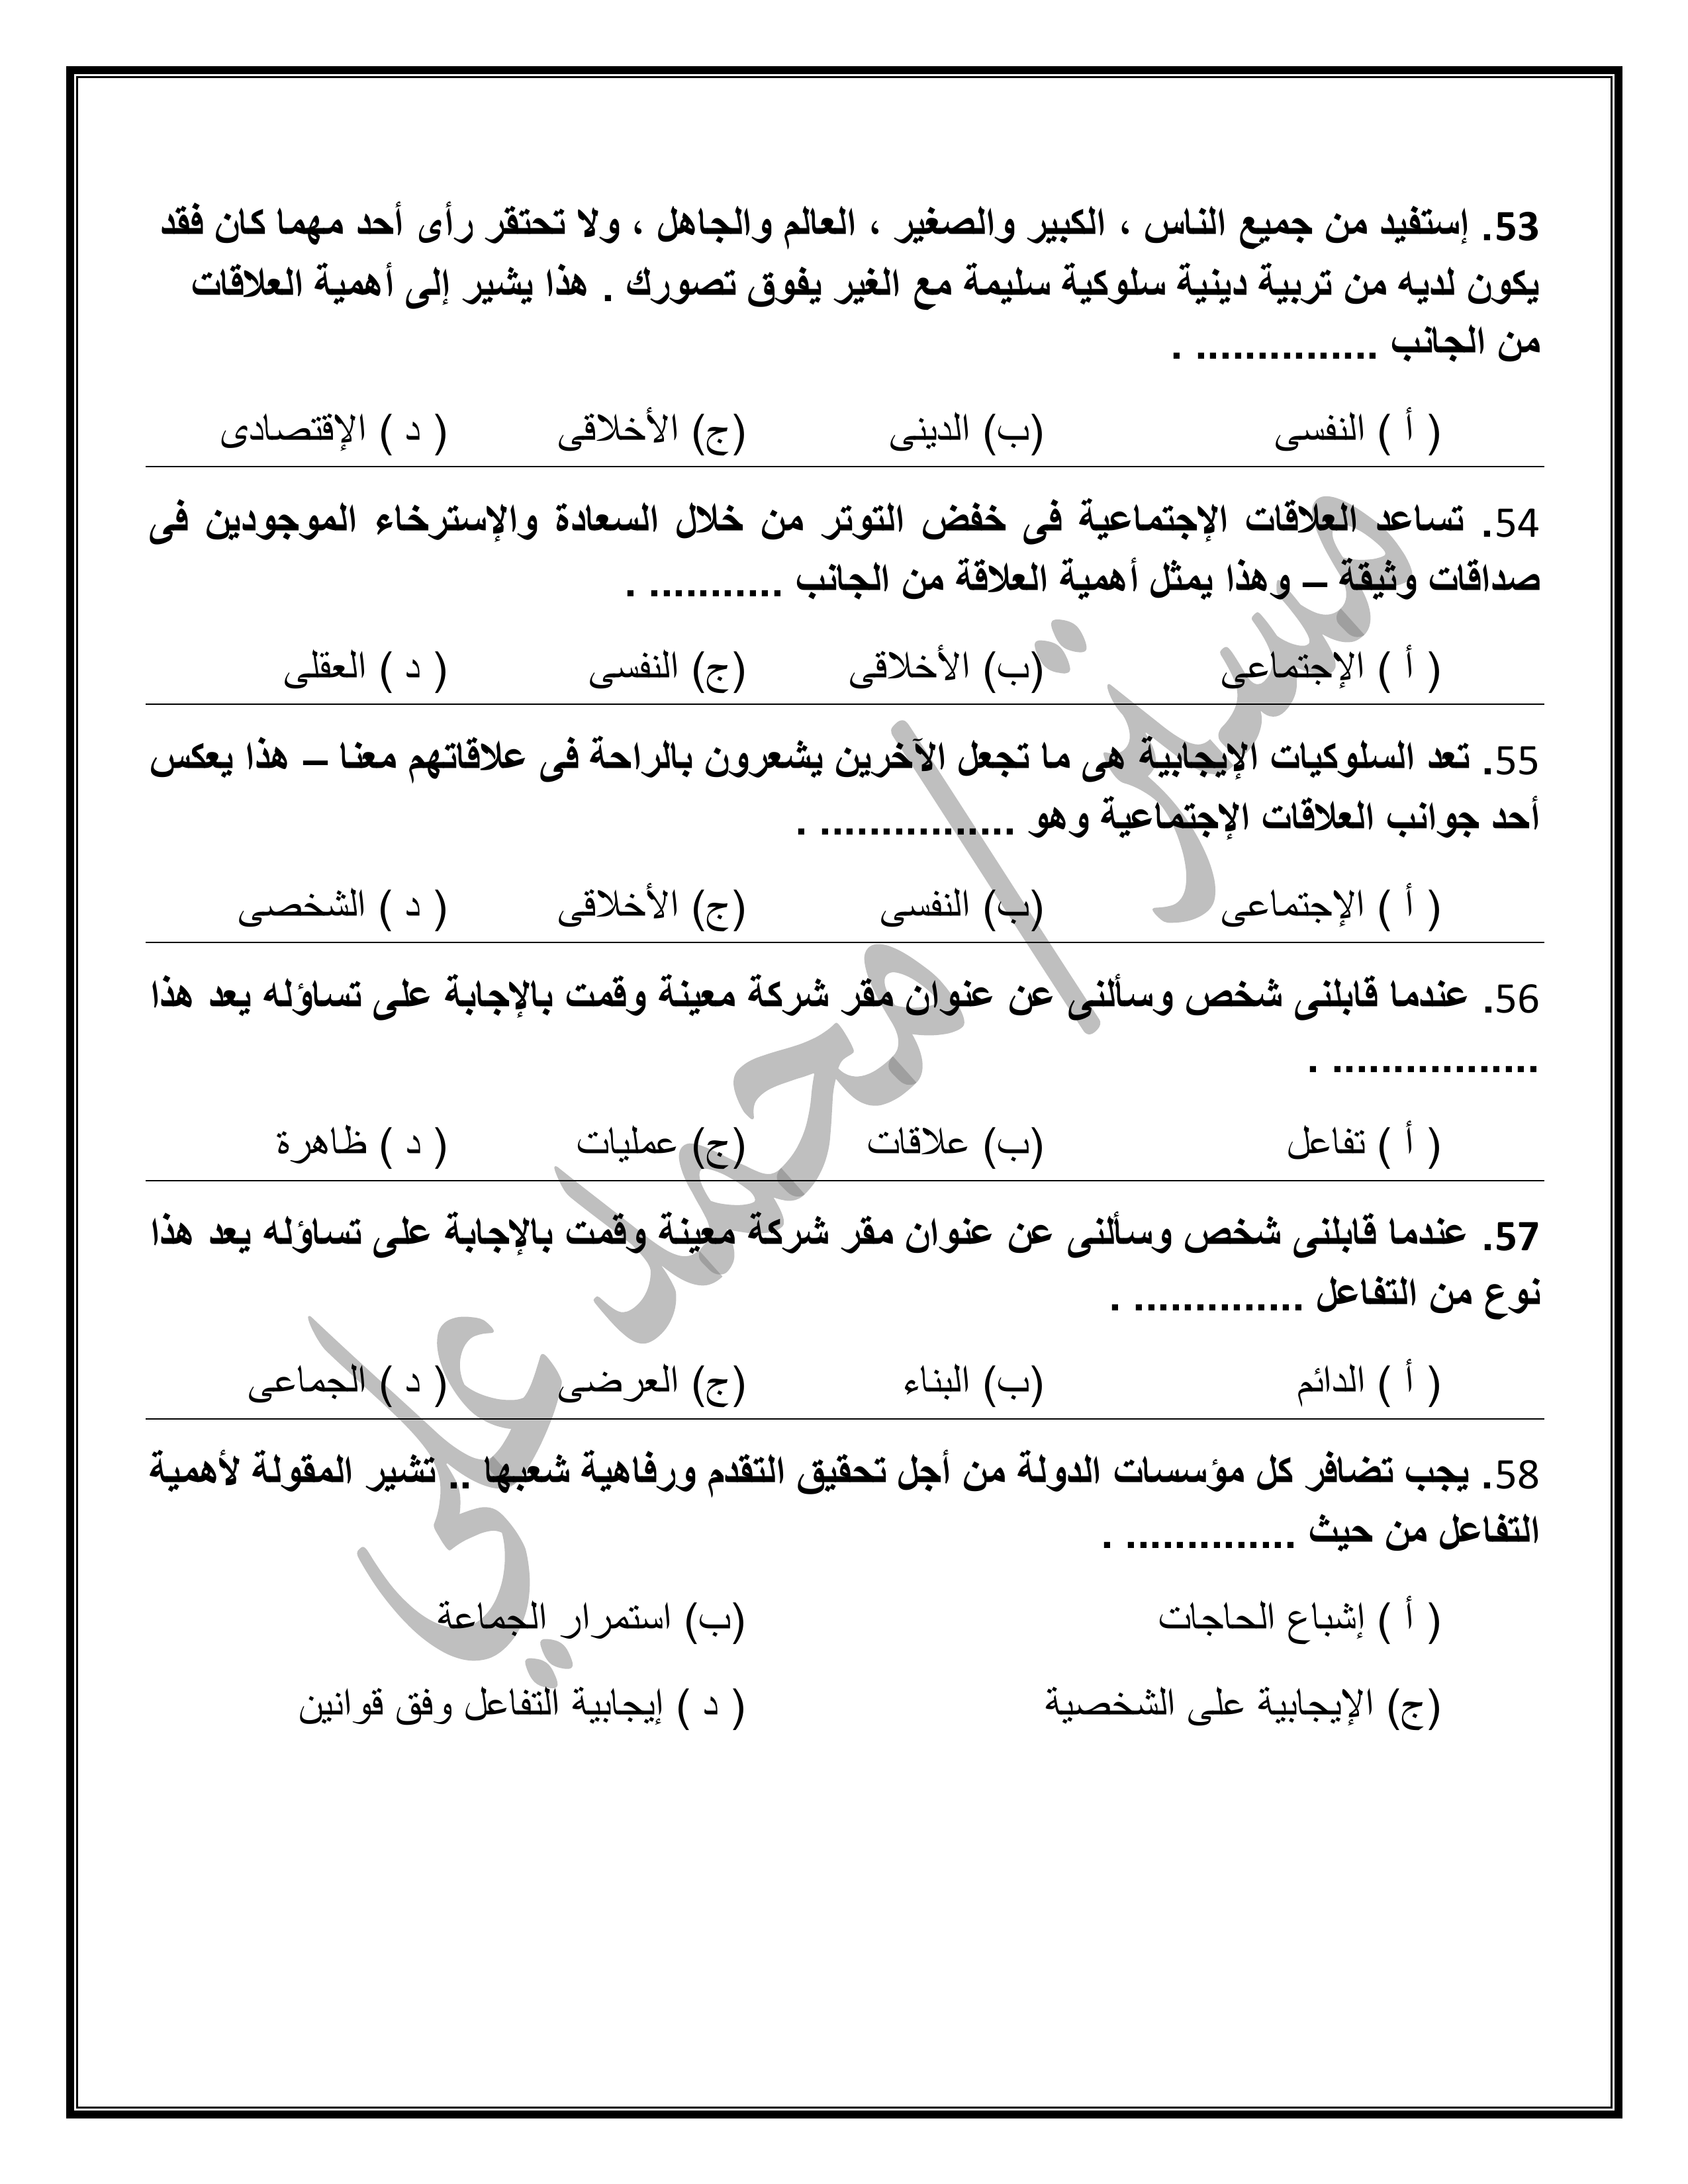 53. إستفيد من جميع الناس ، الكبير والصغير ، العالم والجاهل ، ولا تحتقر رأى أحد مهما كان فقد
يكون لديه من تربية دينية سلوكية سليمة مع الغير يفوق تصورك . هذا يشير إلى أهمية العلاقات
من الجانب ............... .
( أ ) النفسى (ب) الدينى (ج) الأخلاقى ( د ) الإقتصادى
54. تساعد العلاقات الإجتماعية فى خفض التوتر من خلال السعادة والإسترخاء الموجودين فى
صداقات وثيقة – وهذا يمثل أهمية العلاقة من الجانب ........... .
( أ ) الإجتماعى (ب) الأخلاقى (ج) النفسى ( د ) العقلى
55. تعد السلوكيات الإيجابية هى ما تجعل الآخرين يشعرون بالراحة فى علاقاتهم معنا – هذا يعكس
أحد جوانب العلاقات الإجتماعية وهو ................ .
( أ ) الإجتماعى (ب) النفسى (ج) الأخلاقى ( د ) الشخصى
56. عندما قابلنى شخص وسألنى عن عنوان مقر شركة معينة وقمت بالإجابة على تساؤله يعد هذا
................. .
( أ ) تفاعل (ب) علاقات (ج) عمليات ( د ) ظاهرة
57. عندما قابلنى شخص وسألنى عن عنوان مقر شركة معينة وقمت بالإجابة على تساؤله يعد هذا
نوع من التفاعل .............. .
( أ ) الدائم (ب) البناء (ج) العرضى ( د ) الجماعى
58. يجب تضافر كل مؤسسات الدولة من أجل تحقيق التقدم ورفاهية شعبها .. تشير المقولة لأهمية
التفاعل من حيث .............. .
( أ ) إشباع الحاجات (ب) استمرار الجماعة
(ج) الإيجابية على الشخصية ( د ) إيجابية التفاعل وفق قوانين
مستر / محمد علي